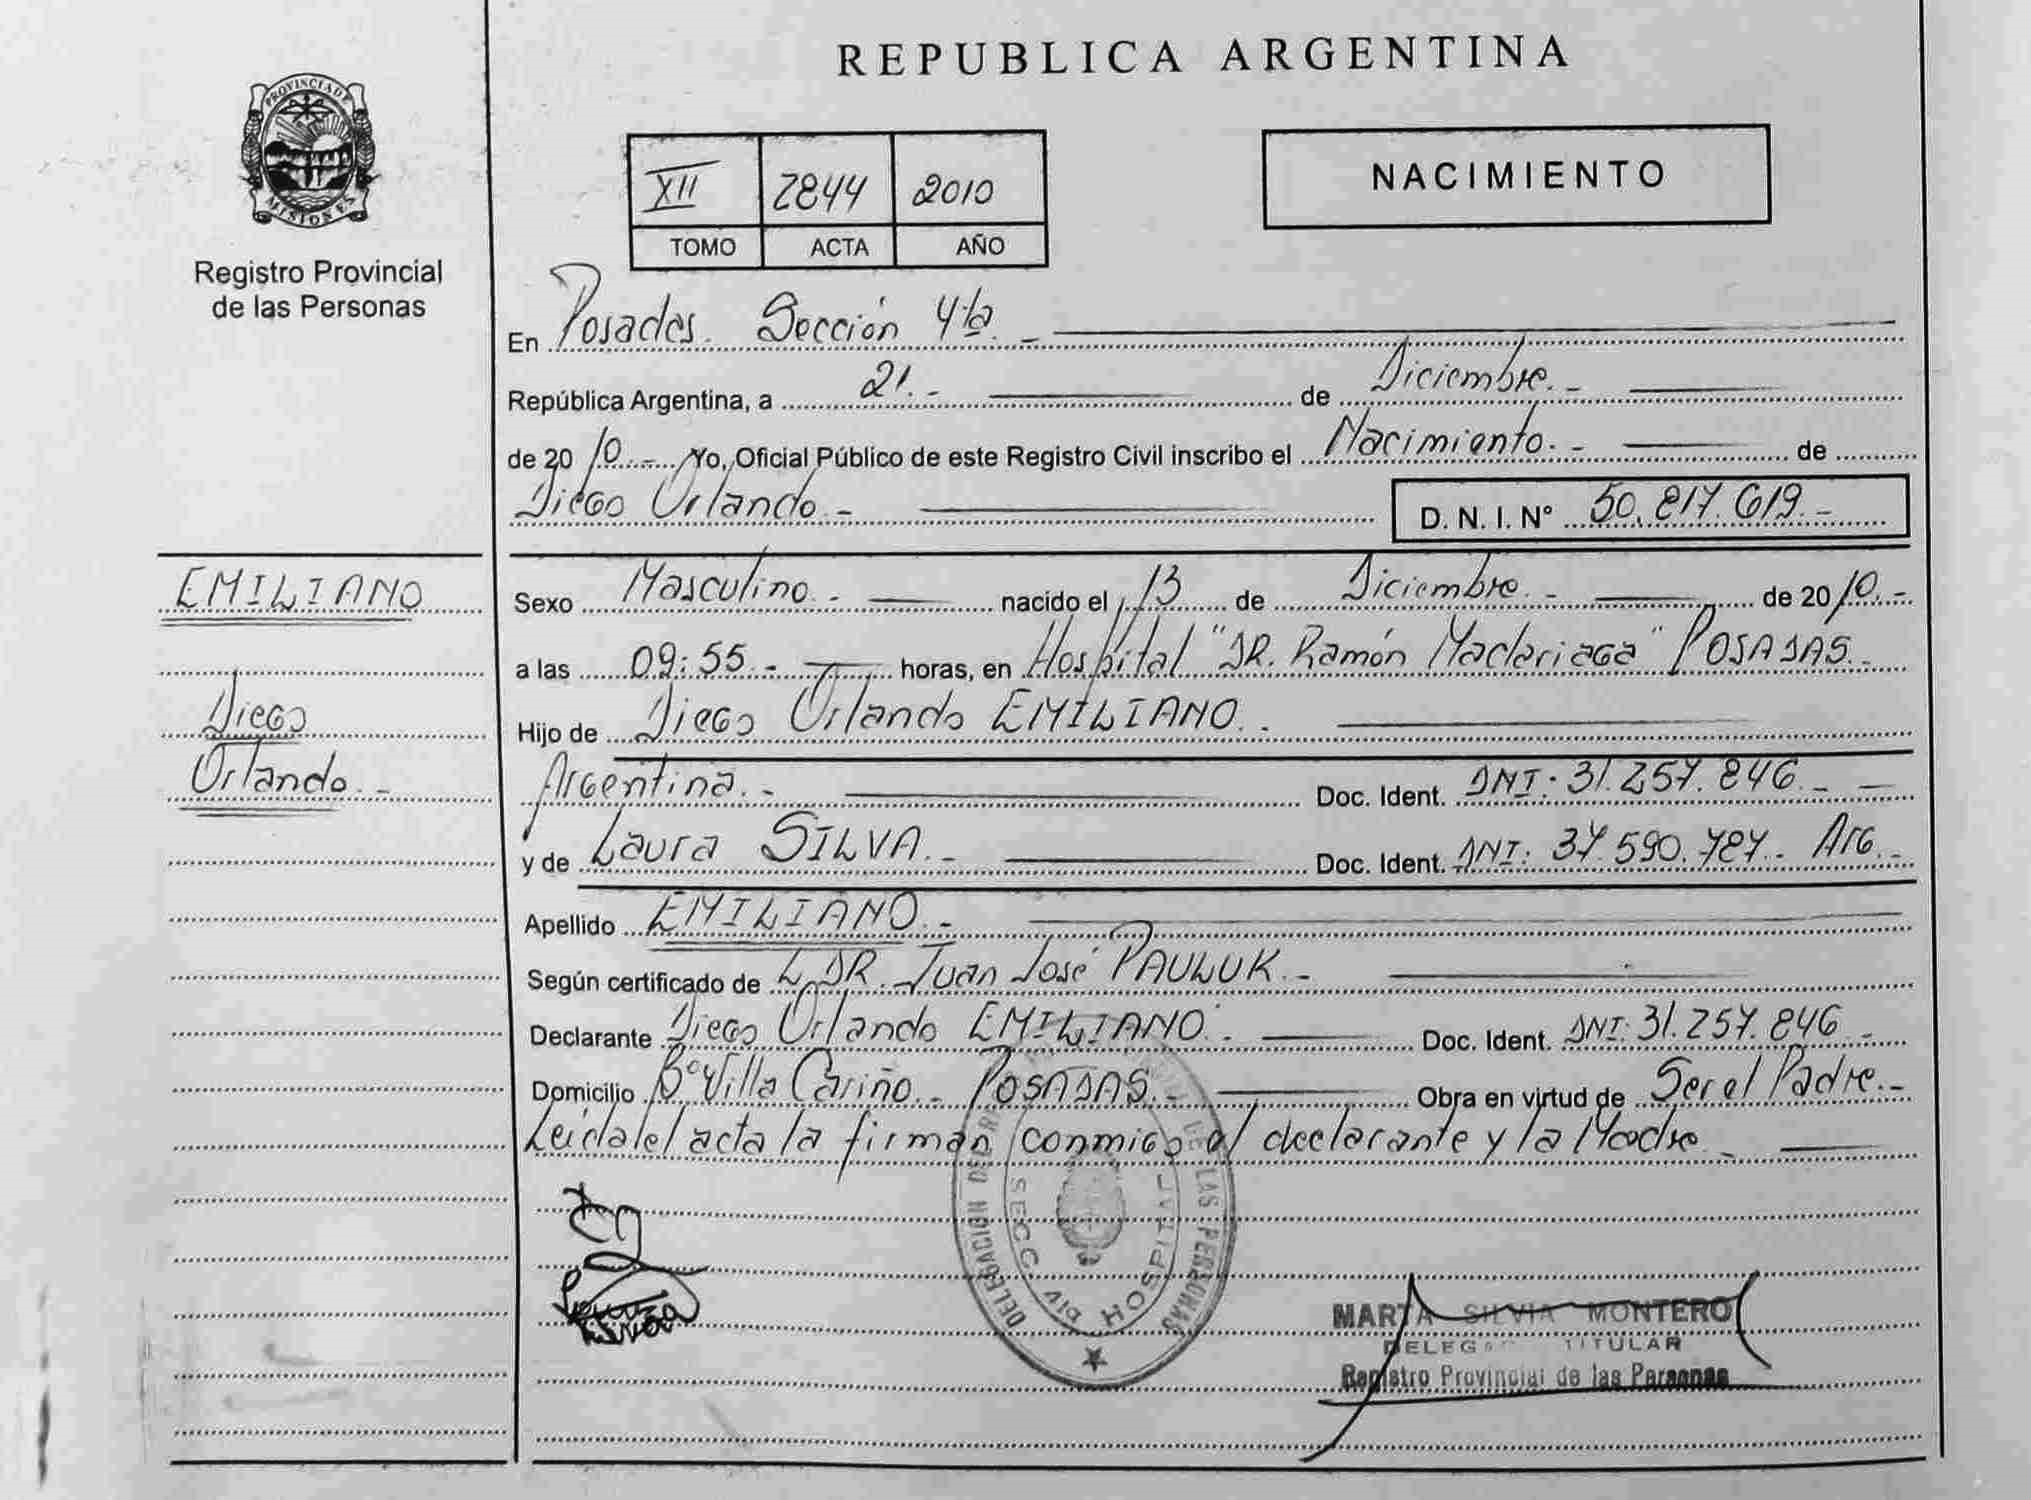 REPUBLICA ARGENTINA
PROVINCIA DE MISIONES
Registro Provincial
de las Personas
XII 2844 2010
TOMO ACTA AÑO
NACIMIENTO
En Posadas. Sección 4ta.-
República Argentina, a 21.- de Diciembre.-
de 2010.- Yo, Oficial Público de este Registro Civil inscribo el Nacimiento.- de
Diego Orlando.- D. N. I. N° 50.817.619.-
EMILIANO
Diego
Orlando.-
Sexo Masculino.- nacido el 13 de Diciembre.- de 2010.-
a las 09:55.- horas, en Hospital "DR. Ramón Madariaga" POSADAS.-
Hijo de Diego Orlando EMILIANO.-
Argentina.- Doc. Ident. DNI: 31.257.846.-
y de Laura SILVA.- Doc. Ident. DNI: 37.590.787.- Arg.-
Apellido EMILIANO.-
Según certificado de L DR. Juan José PAULUK.-
Declarante Diego Orlando EMILIANO.- Doc. Ident. DNI: 31.257.846.-
Domicilio B° Villa Cariño.- POSADAS.- Obra en virtud de Ser el Padre.-
Leída el acta la firman conmigo el declarante y la Madre.-
DELEGACION DE LAS PERSONAS
SECC HOSPITAL
MARTA SILVIA MONTERO
TITULAR
Registro Provincial de las Personas